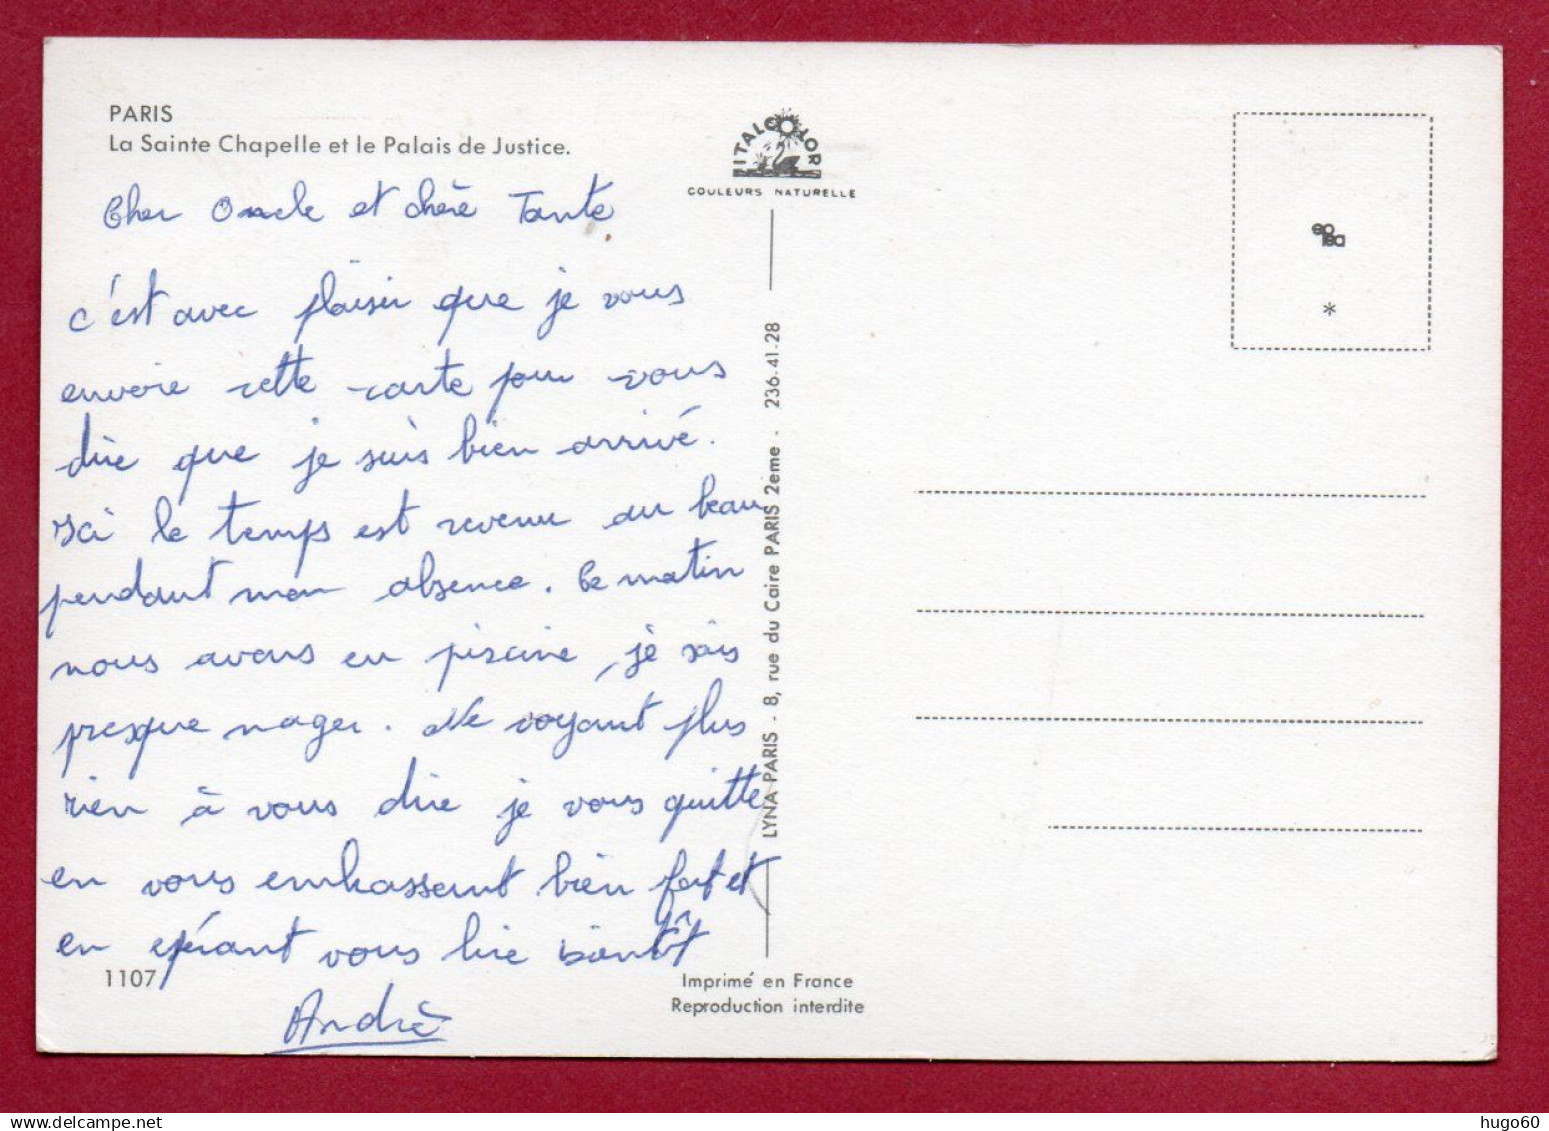 PARIS
La Sainte Chapelle et le Palais de Justice.
ITALCOLOR
COULEURS NATURELLE
Cher Oncle et chère Tante
c'est avec plaisir que je vous
envoie cette carte pour vous
dire que je suis bien arrivé.
Ici le temps est revenu au beau
pendant mon absence. Ce matin
nous avons eu piscine, je sais
presque nager. Ne voyant plus
rien à vous dire je vous quitte
en vous embrassent bien fort et
en espérant vous lire bientôt
André
1107
LYNA-PARIS - 8, rue du Caire PARIS 2ème - 236.41-28
Imprimé en France
Reproduction interdite
*
www.delcampe.net
hugo60